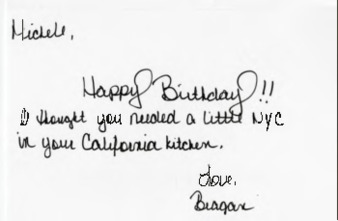 Michele,
Happy Birthday!!
I thought you needed a little NYC
in your California kitchen.
Love,